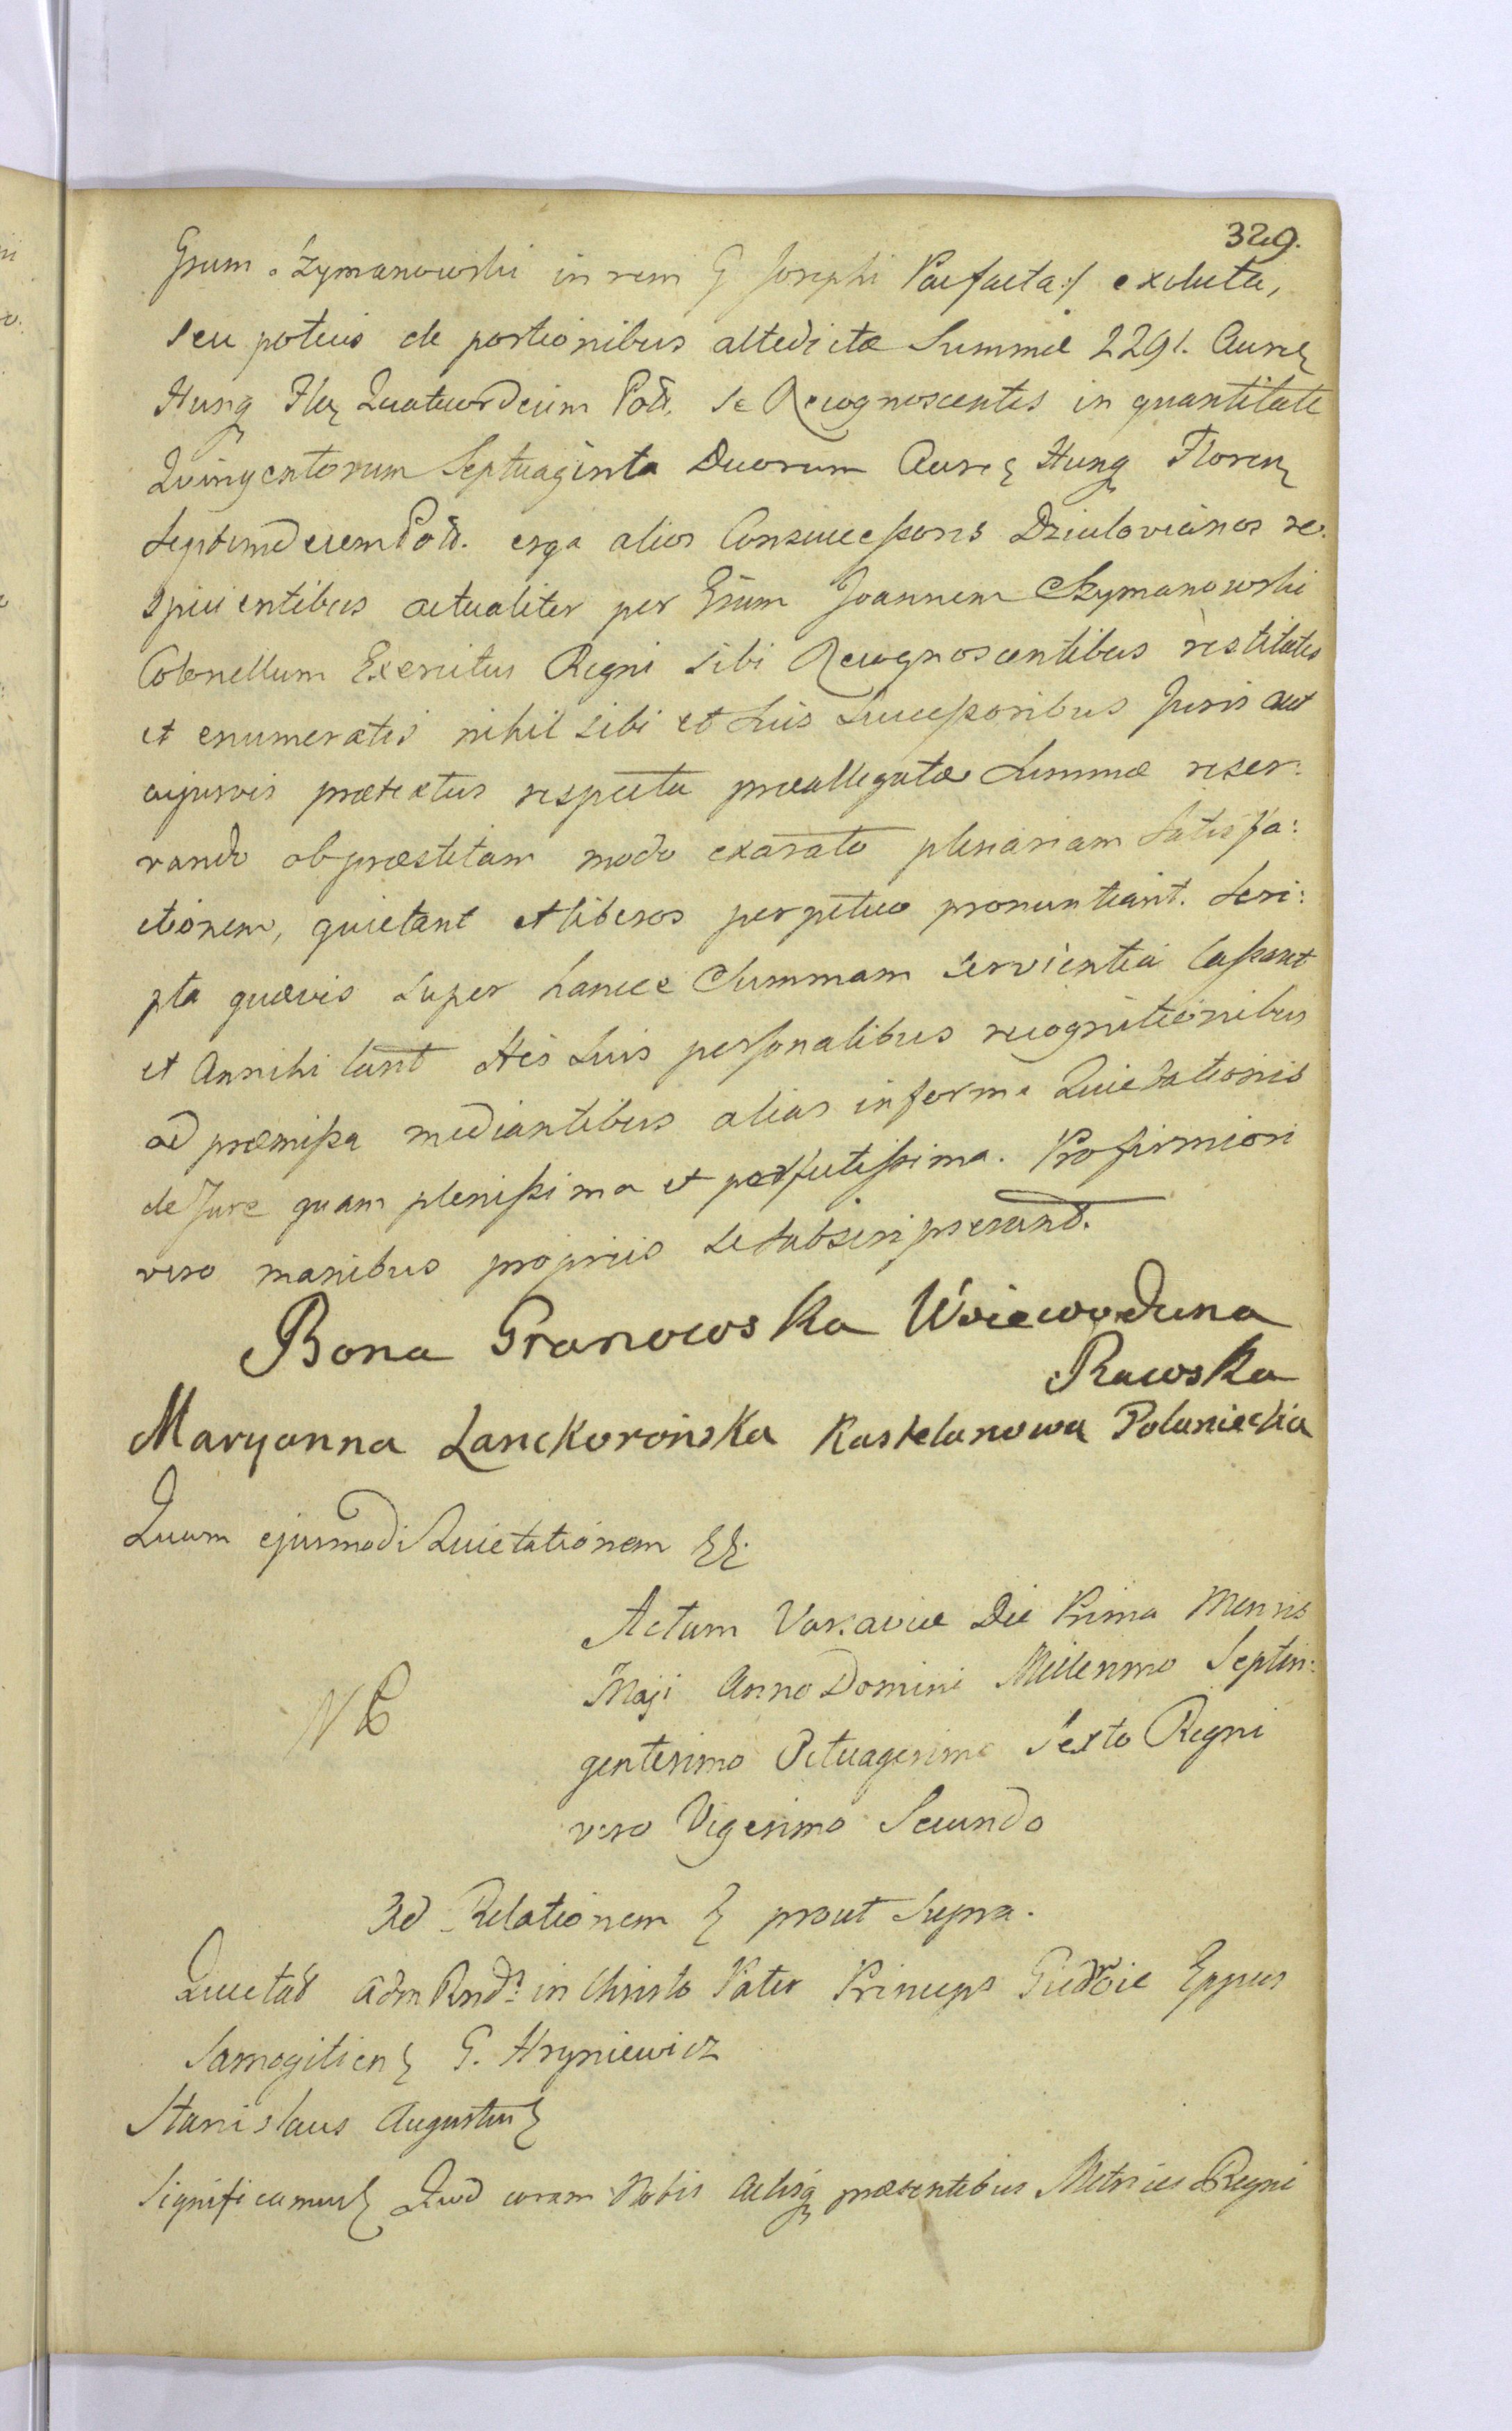 329.
Gsum Szymanowski in rem G Josephi Parfacta :/ exoluta,
seu potius de portionibus altedictæ Summæ 2291. Aureξ
Hung Floξ Quatuordecim Pol̃. Se Recognoscentes in quantitate
Quingentorum Septuaginta Duorum Aureξ Hung Florenξ
Septemdecem Pol̃. erga alios Consuccessores Dziulovianos re:
spicientibus actualiter per Gsum Joannem Szymanowski
Colonellum Exercitus Regni sibi Recognoscentibus restitutis
et enumeratis nihil sibi et Suis Successoribus Juris aut
cujusvis prætextus respectu præallegatæ Summæ reser:
vando ob præstitam modo exarato plenariam Satisfa:
ctionem, quietant et liberos perpetuo pronuntiant. Scri:
pta quævis super hancce Summam servientia Cassant
et Annihilant His Suis personalibus recognitionibus
ad præmissa mediantibus alias in forma Quietationis
de Jure quam plenissima et perfectissima. Pro firmiori
vero manibus propriis se subscripserunt.
Bona Granowska Woiewodzina
Rawska
Maryanna Lanckorońska Kasztelanowa Polaniecka
Quam ejusmodi Quietationem ξξ.
Actum Varsaviæ Die Prima Mensis
Maji Anno Domini Millesimo Septin:
gentesimo Octuagesimo Sexto Regni
vero Vigesimo Secundo
Ad Relationem ξ prout Supra.
Quietat̃ Adm Rnd̃s in Christo Pater Princeps Giedroić Eppus
Samogitienξ G. Hryniewicz
Stanislaus Augustusξ
Significamusξ Quod coram Nobis Actisq præsentibus Metrices Regni